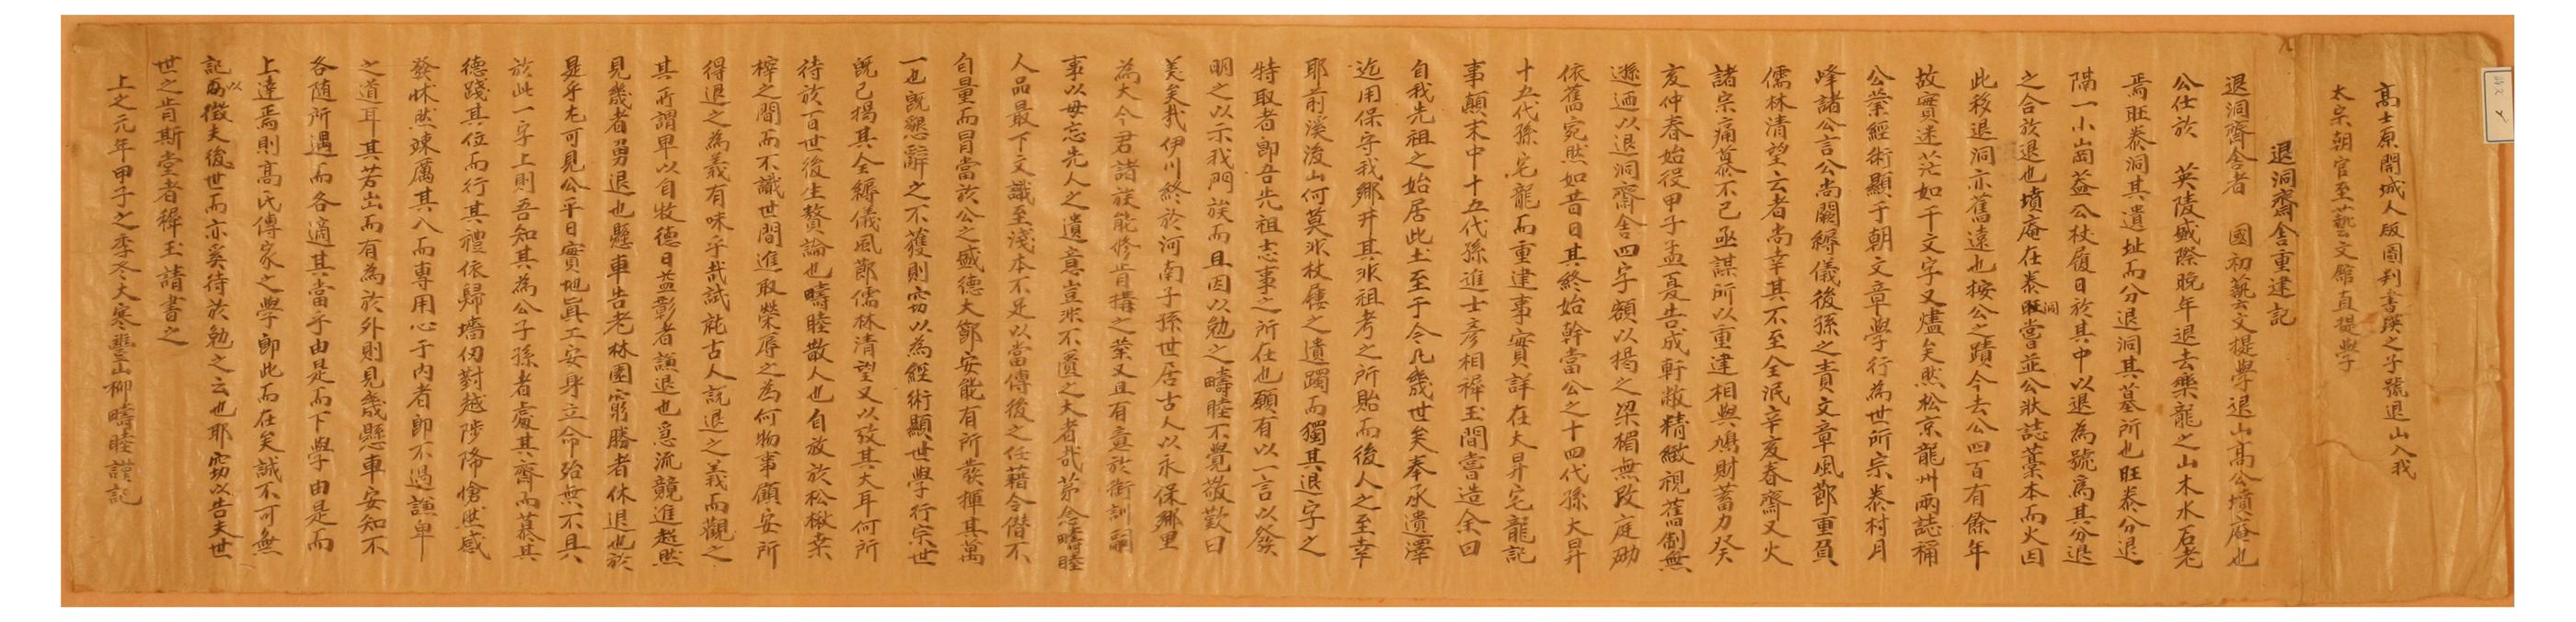 高士原開城人版圖判書瑛之子號退山入我
太宗朝官至藝文館直提學
退洞齋舍重建記
退洞齋舍者 國初藝文提學退山高公墳庵也
公仕於 英陵盛際晩年退去樂龍之山木水石老
焉旺泰洞其遺址而分退洞其墓所也旺泰分退
隔一小崗蓋公杖屨日於其中以退爲號爲其分退
之合於退也墳庵在泰旺洞當並公狀誌藁本而火因
此移退洞亦舊遠也按公之蹟今去公四百有餘年
故實迷茫如千文字又燼矣然松京龍州兩誌稱
公蘂經術顯于朝文章學行爲世所宗泰村月
峰諸公言公尚闕縟儀後孫之責文章風節重負
儒林清望云者尚幸其不至全泯辛亥春齋又火
諸宗痛慕不已亟謀所以重建相與鳩財蓄力癸
亥仲春始役甲子孟夏告成軒敞精緻視舊制無
遜迺以退洞齋舍四字額以揭之梁楣無改庭砌
依舊宛然如昔日其終始幹當公之十四代孫大昇
十五代孫宅龍而重建事實詳在大昇宅龍記
事顛末中十五代孫進士彦相穉玉間嘗造余曰
自我先祖之始居此土至于今凡幾世矣奉承遺澤
迄用保守我鄕井其非祖考之所貽而後人之至幸
耶前溪後山何莫非杖屨之遺躅而獨其退字之
特取者卽吾先祖志事之所在也願有以一言以發
明之以示我門族而且因以勉之疇睦不覺敬歎曰
美矣哉伊川終於河南子孫世居古人以永保鄕里
爲大今君諸族能修肯搆之業又且有意於衛訓嗣
事以毋忘先人之遺意豈非不匱之大者哉茅念疇睦
人品最下文識至淺本不足以當傳後之任藉令僭不
自量而冒當於公之盛德大節安能有所發揮其萬
一也旣懇辭之不獲則窃以爲經術顯世學行宗世
旣已揭其全縟儀風節儒林清望又以攷其大耳何所
待於百世後生贅論也疇睦散人也自放於松楸桑
梓之間而不識世間進取榮辱之爲何物事顧安所
得退之爲義有味乎哉試就古人說退之義而觀之
其所謂卑以自牧德日益彰者謙退也急流競進超然
見幾者勇退也懸車告老林園窮勝者休退也於
是乎尤可見公平日實地眞工安身立命殆無不具
於此一字上則吾知其爲公子孫者處其齋而慕其
德踐其位而行其禮依歸墻仞對越陟降愴然感
發怵然竦厲其入而專用心于內者卽不過謙卑
之道耳其若出而有爲於外則見幾懸車安知不
各随所遇而各適其當乎由是而下學由是而
上達焉則高氏傳家之學卽此而在矣誠不可無
記以爲徵夫後世而亦奚待於勉之云也耶窃以告夫世
世之肯斯堂者穉玉請書之
上之元年甲子之季冬大寒豊山柳疇睦謹記